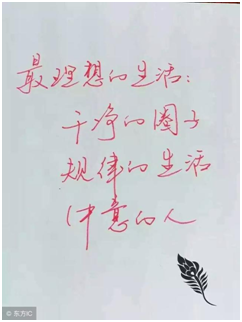 最理想的生活：
干净的圈子
规律的生活
中意的人
东方IC